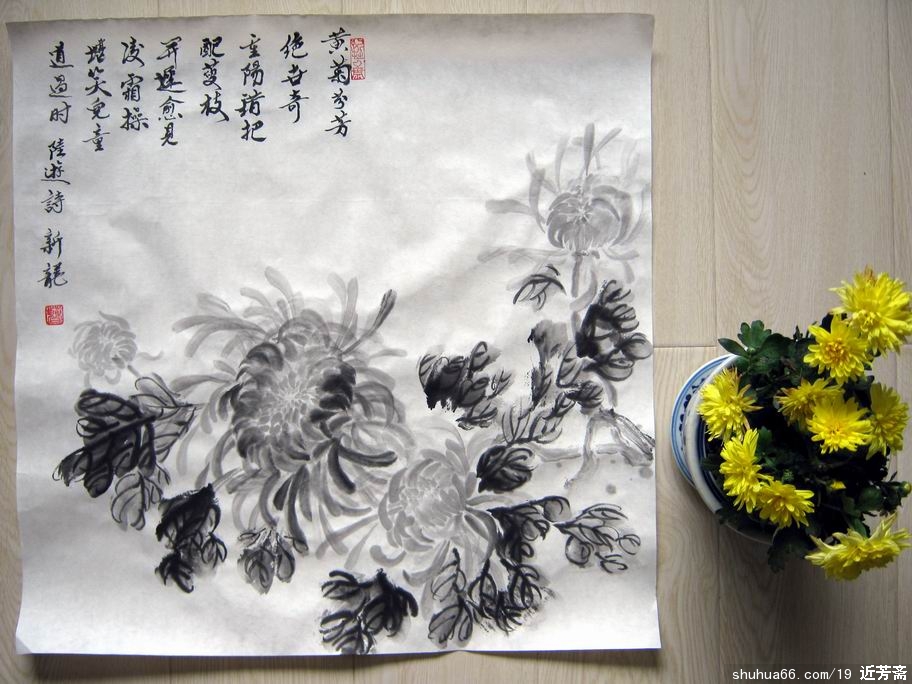 黄菊芬芳
絶世奇
重陽錯把
配萸枝
开遲愈見
凌霜操
堪笑兒童
道過时 陸遊詩 新龍
shuhua66.com/19 近芳斋